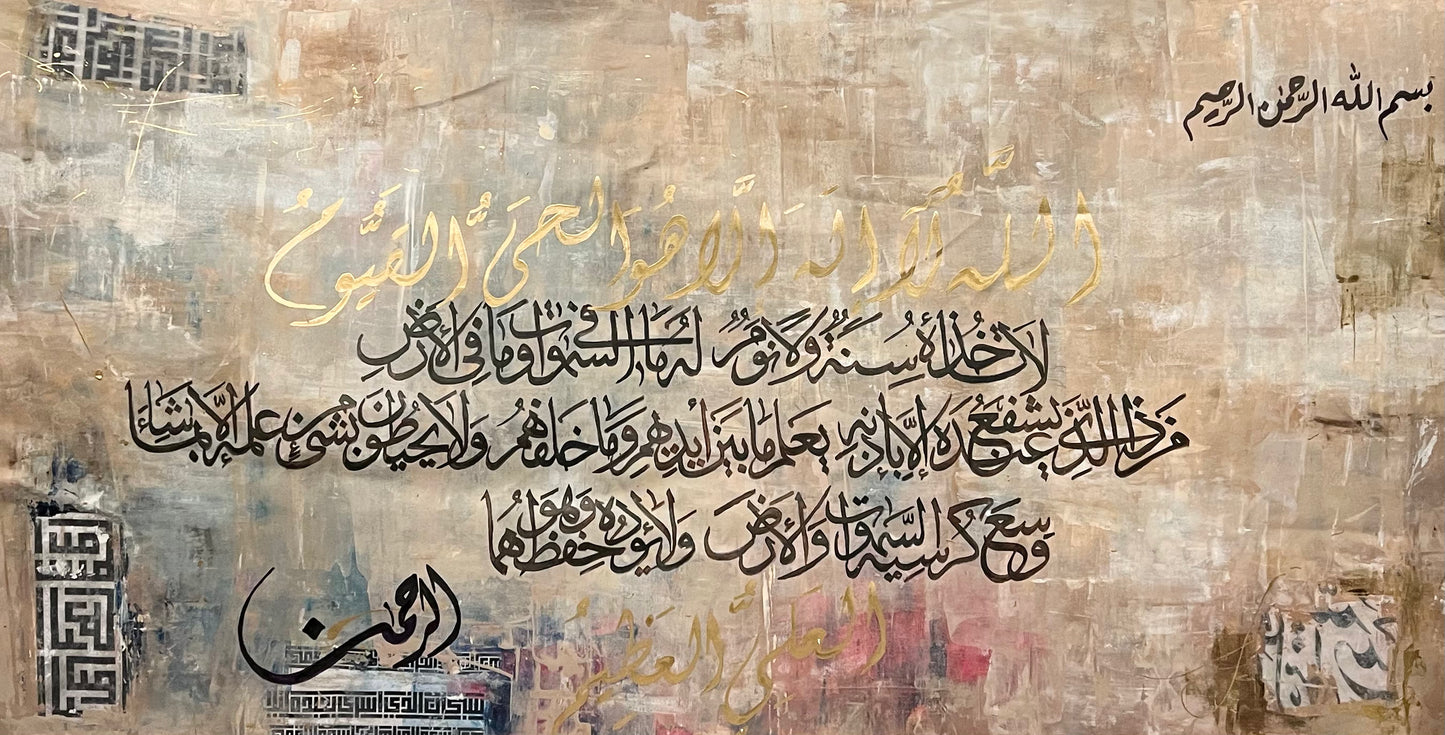 بسم الله الرحمٰن الرحيم
اللَّهُ لَآ إِلَهَ إِلَّا هُوَ الحَيُّ القَيُّومُ
لا تأخذه سِنَةٌ وَلَا نَوْمٌ لَهُ ما في السموات وما في الأرض
من ذا الَّذي يشفعُ عنده إلا بإذنه يعلم ما بين أيديهم وما خلفهم ولا يحيطون بشيء من علمه إلا بما شاء
وسع كرسيه السموات والأرض ولا يؤده حفظهما وهو
العَلِيُّ العَظِيمُ
الرحمن